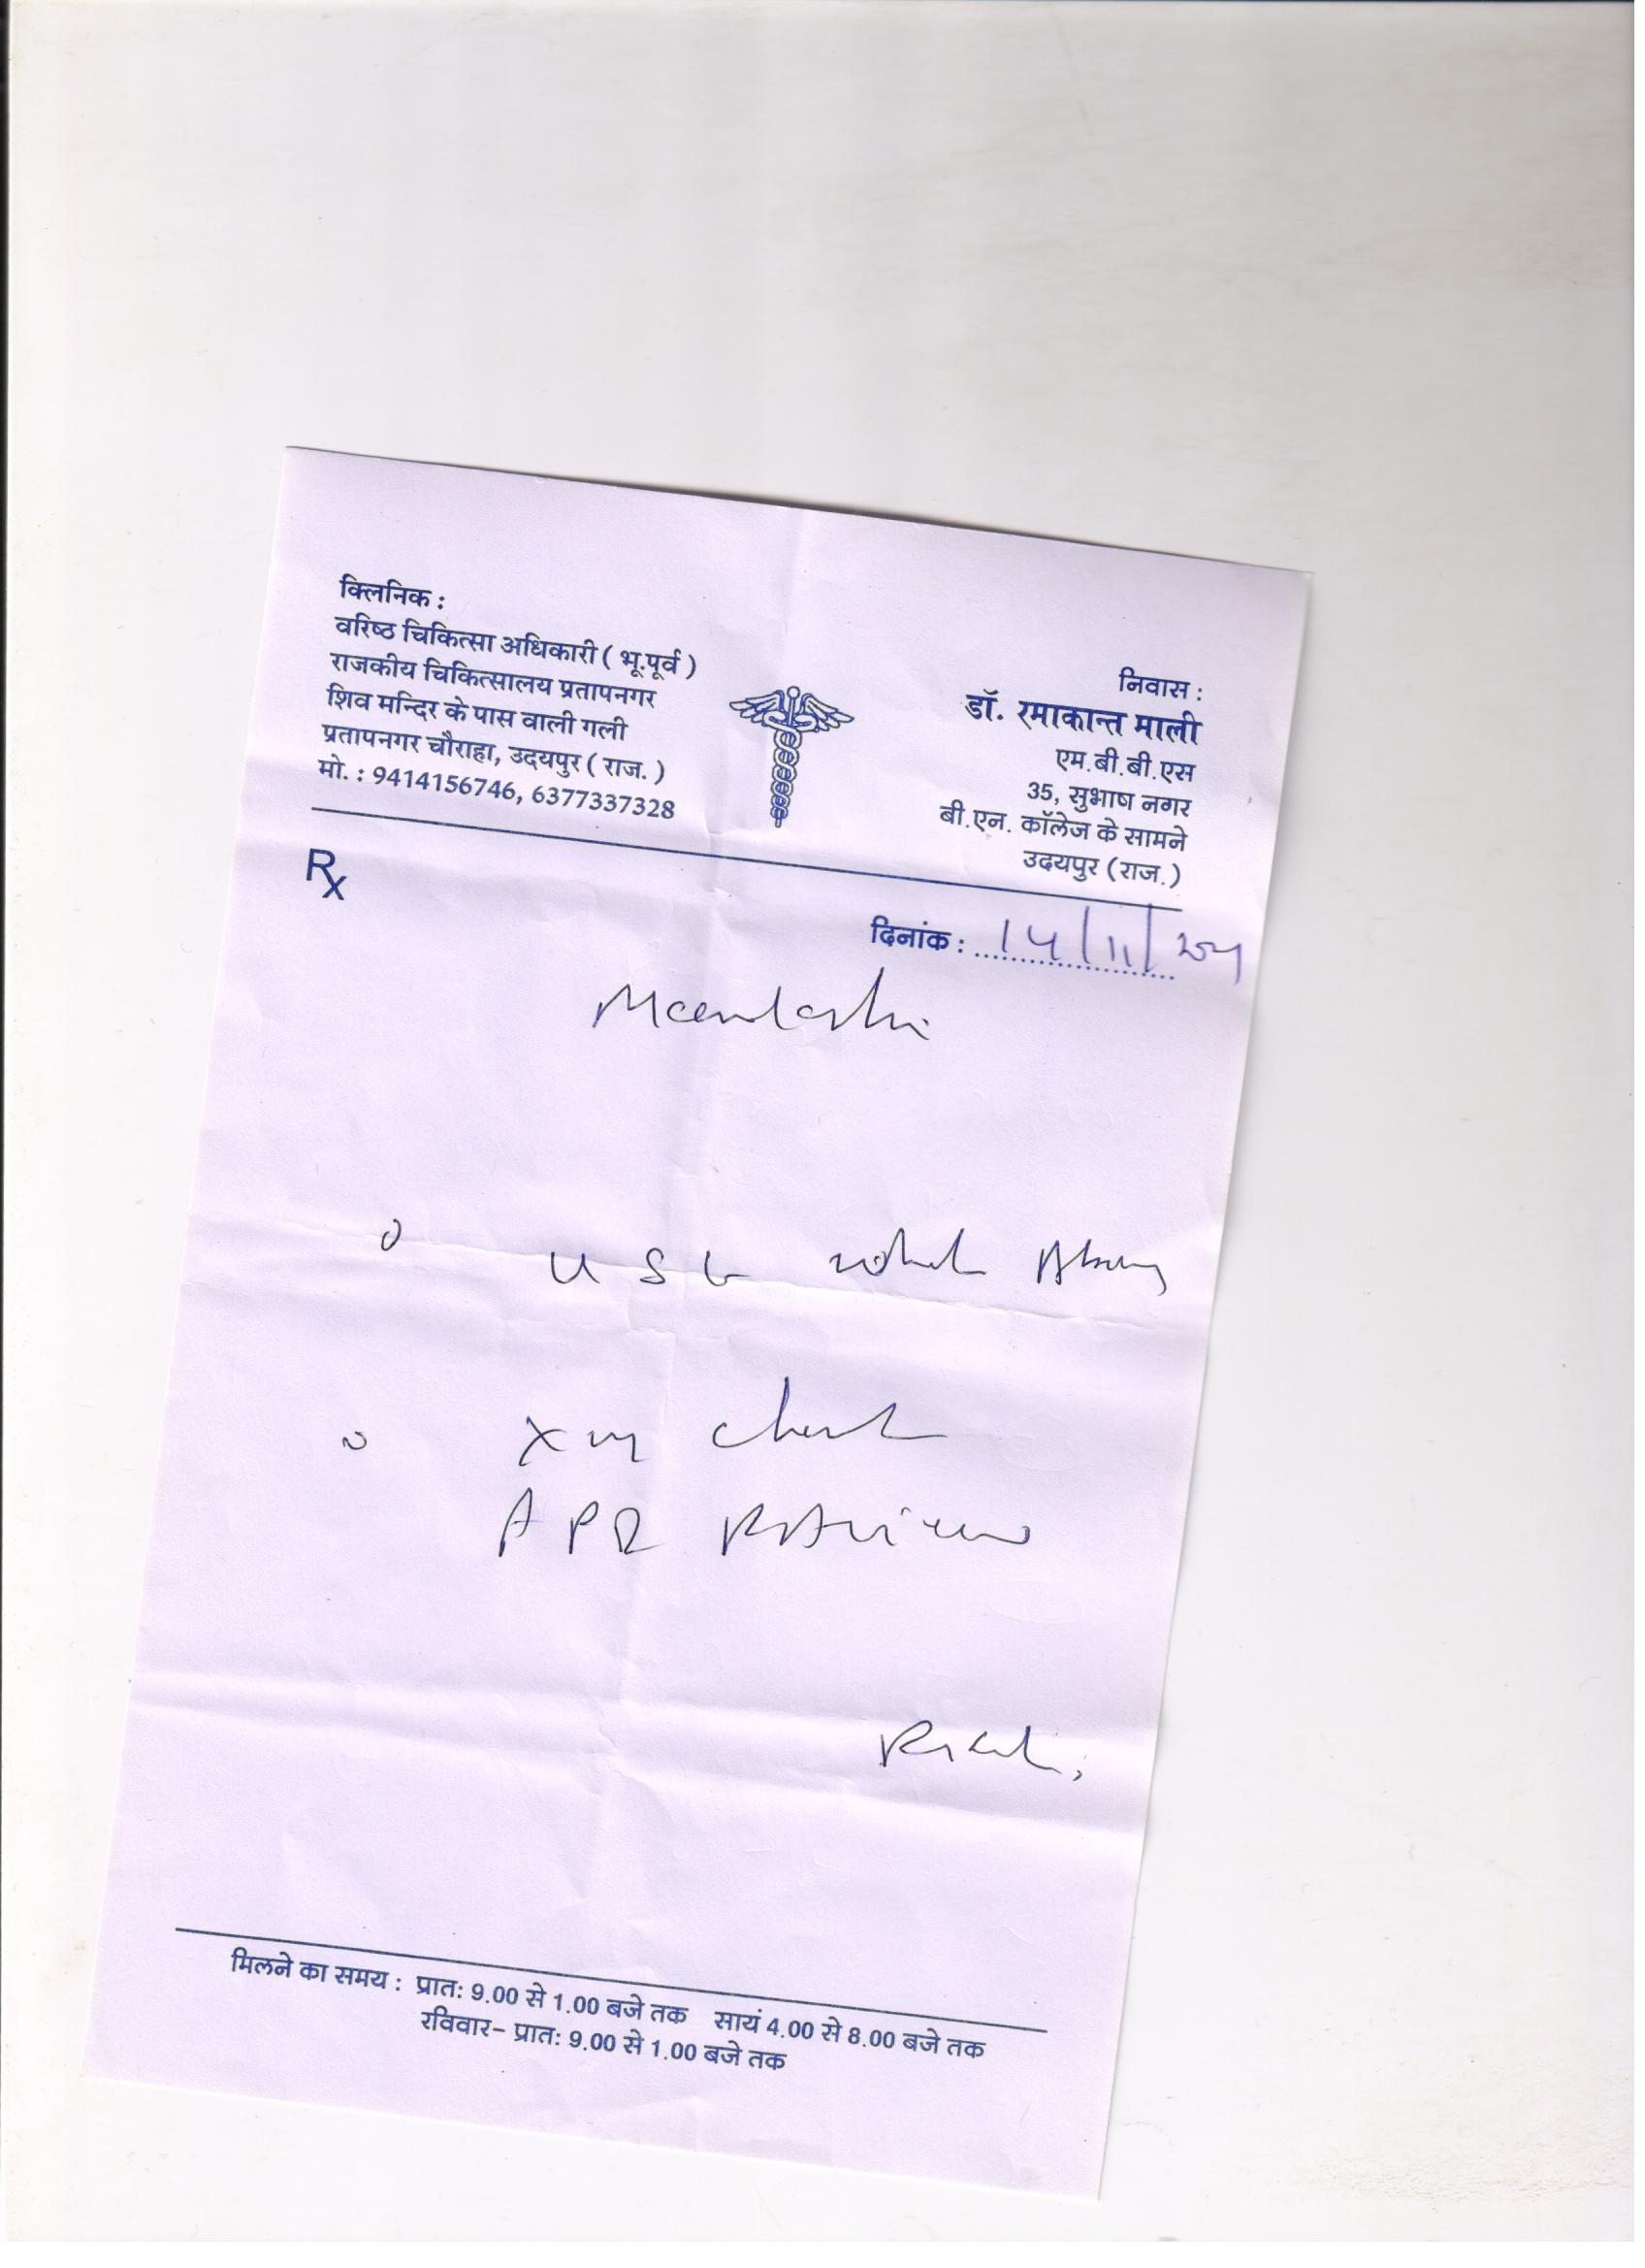 क्लिनिक :
वरिष्ठ चिकित्सा अधिकारी ( भू.पूर्व )
राजकीय चिकित्सालय प्रतापनगर
शिव मन्दिर के पास वाली गली
प्रतापनगर चौराहा, उदयपुर ( राज. )
मो. : 9414156746, 6377337328
निवास :
डॉ. रमाकान्त माली
एम.बी.बी.एस
35, सुभाष नगर
बी.एन. कॉलेज के सामने
उदयपुर (राज.)
Rx
दिनांक : 14/11/24
Meenakshi
USG whole
X ray chest
मिलने का समय : प्रातः 9.00 से 1.00 बजे तक सायं 4.00 से 8.00 बजे तक
रविवार- प्रातः 9.00 से 1.00 बजे तक